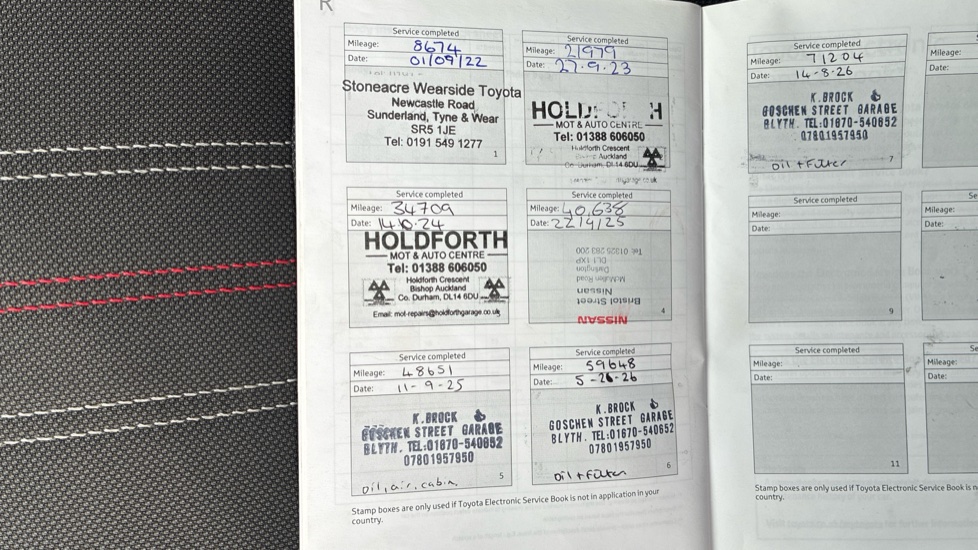 R
Service completed
Mileage: 8674
Date: 01/09/22
Stoneacre Wearside Toyota
Newcastle Road
Sunderland, Tyne & Wear
SR5 1JE
Tel: 0191 549 1277
1
Service completed
Mileage: 21979
Date: 27.9.23
MOT & AUTO CENTRE
Tel: 01388 606050
Holdforth Crescent
Auckland
Co. Durham, DL14 6DU
Service completed
Mileage: 34709
Date: 14.10.24
HOLDFORTH
MOT & AUTO CENTRE
Tel: 01388 606050
Holdforth Crescent
Bishop Auckland
Co. Durham, DL14 6DU
Email: mot-repairs@holdforthgarage.co.uk
Service completed
Mileage: 40,638
Date: 22/4/25
NISSAN
Bristol Street
Nissan
McMullen Road
Darlington
DL1 1XP
4
Service completed
Mileage: 48651
Date: 11-9-25
K.BROCK
GOSCHEN STREET GARAGE
BLYTH. TEL:01670-540652
07801957950
oil, air, cabin
5
Service completed
Mileage: 59648
Date: 5-26-26
K.BROCK
GOSCHEN STREET GARAGE
BLYTH. TEL:01670-540652
07801957950
oil + Filter
6
Stamp boxes are only used if Toyota Electronic Service Book is not in application in your
country.
Service completed
Mileage: 71204
Date: 14-8-26
K.BROCK
GOSCHEN STREET GARAGE
BLYTH. TEL:01670-540652
07801957950
oil + Filter
7
Mileage:
Date:
Service completed
Mileage:
Date:
9
Se
Mileage:
Date:
Service completed
Mileage:
Date:
11
Se
Mileage:
Date:
Stamp boxes are only used if Toyota Electronic Service Book is n
country.